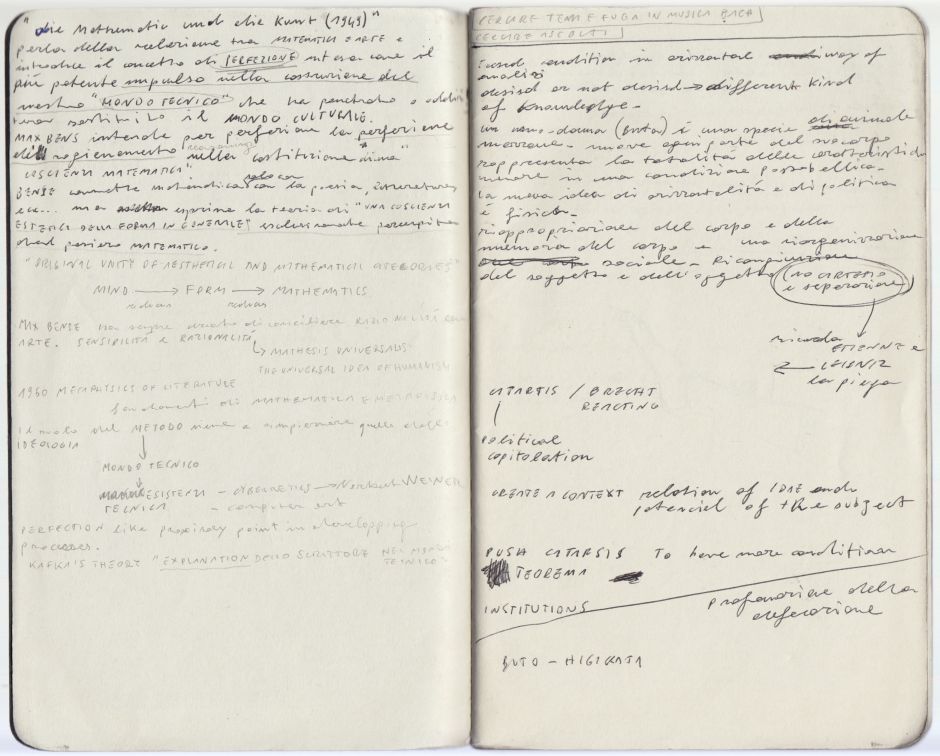 "die Mathematic und die Kunst (1949)"
parla della relazione tra MATEMATICA E ARTE e
introduce il concetto di PERFEZIONE come il
più potente impulso nella costruzione del
nostro "MONDO TECNICO" che ha penetrato o addirit
tura sostituito il MONDO CULTURALE.
MAX BENS intende per perfezione la perfezione
del ragionamento nella costituzione
COSCIENZA MATEMATICA".
BENSE connette mathematica con la poesia, letteratura,
ecc... ma esprime la teoria di "UNA COSCIENZA
ESTETICA DELLA FORMA IN GENERALE" esclusivamente percepita
dal pensiero MATEMATICO.
"ORIGINAL UNITY OF AESTHETICAL AND MATHEMATICAL CATEGORIES"
MIND → FORM → MATHEMATICS
MAX BENSE ha sempre cercato di conciliare RAZIONALITÀ
ARTE. SENSIBILITÀ E RAZIONALITÀ
MATHESIS UNIVERSALIS
THE UNIVERSAL IDEA OF HUMANISM
1950 METAPHYSICS OF LITERATURE
fondamenti di MATHEMATICA E METAFISICA
Il ruolo del METODO viene a rimpiazzare quello della
IDEOLOGIA
MONDO TECNICO
ESISTENZA - CYBERNETICS → Norbert WEINER
TECNICA - computer art
PERFECTION like point in developping
processes.
KAFKA'S THEORY "EXPLANATION DELLO SCRITTORE NEL MONDO
TECNICO"
CERCARE TEMA E FUGA IN MUSICA BACH
CERCARE ASCOLTI
condition in orizontal way of
analisi
desired or not desired → different kind
of knowledge -
un uomo-donna (Buto) è una specie di animale
muove ogni parte del suo corpo
rappresenta la totalità delle caratteristiche
umane in una condizione postbellica -
la nuova idea di orizzontalità e di politica
è fisica -
riappropriazione del corpo e della
memoria del corpo e una riorganizzazione
sociale - Ricongiunzione
del soggetto e dell'oggetto (NO CARTESIO
e separazione)
ricorda
ETIENNE e
← LEIBNIZ
la piega
CATARSIS / BRECHT
REACTING
political
capitolation
CREATE A CONTEXT relation of IDAE and
potenciel of the subject
PUSH CATARSIS To have more condition
TEOREMA
INSTITUTIONS profanazione della
BUTO - HIGIKATA